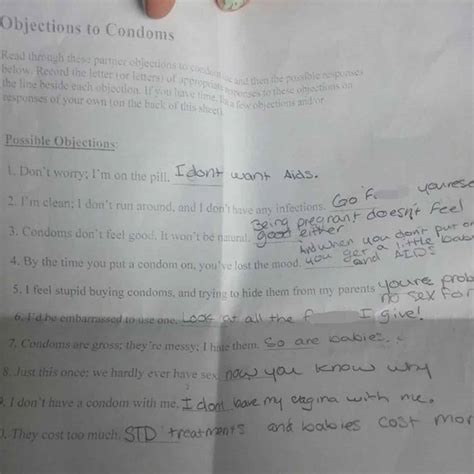 Objections to Condoms
Read through these partner objections to condom use and then the possible responses
below. Record the letter (or letters) of appropriate responses to these objections on
the line beside each objection. If you have time, list a few objections and/or
responses of your own (on the back of this sheet).
Possible Objections:
1. Don't worry; I'm on the pill. I dont want Aids.
2. I'm clean; I don't run around, and I don't have any infections. Go F
Being pregnant doesn't feel
3. Condoms don't feel good. It won't be natural. good either
And when you don't put on
4. By the time you put a condom on, you've lost the mood. you get a little
and AIDS
5. I feel stupid buying condoms, and trying to hide them from my parents youre
no sex for
6. I'd be embarrassed to use one. Look at all the f I give!
7. Condoms are gross; they're messy; I hate them. So are babies.
8. Just this once; we hardly ever have sex. now you know why
. I don't have a condom with me. I dont leave my vagina with me.
. They cost too much. STD treatments and babies cost mor